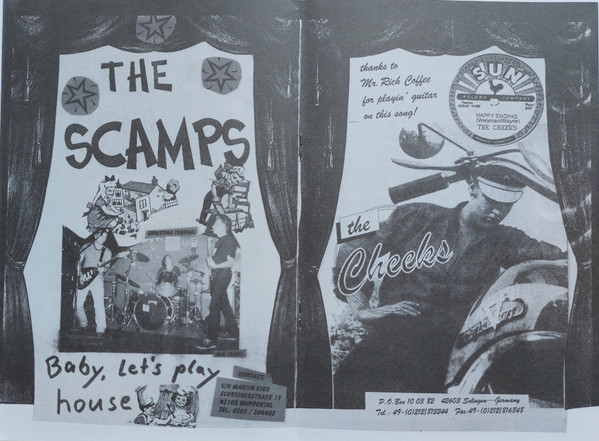 THE
SCAMPS
Baby, Let's play
house
KONTAKT:
C/O MARTIN EGER
42103 WUPPERTAL
TEL: 0202 / 304402
thanks to
Mr. Rich Coffee
for playin' guitar
on this song!
SUN
RECORD COMPANY
HAPPY ENDING
THE CHEEKS
the
Cheeks
P.O. Box 10 03 82 42603 Solingen - Germany
Tel.: 49-(0)212/815244 Fax:49-(0)212/816348